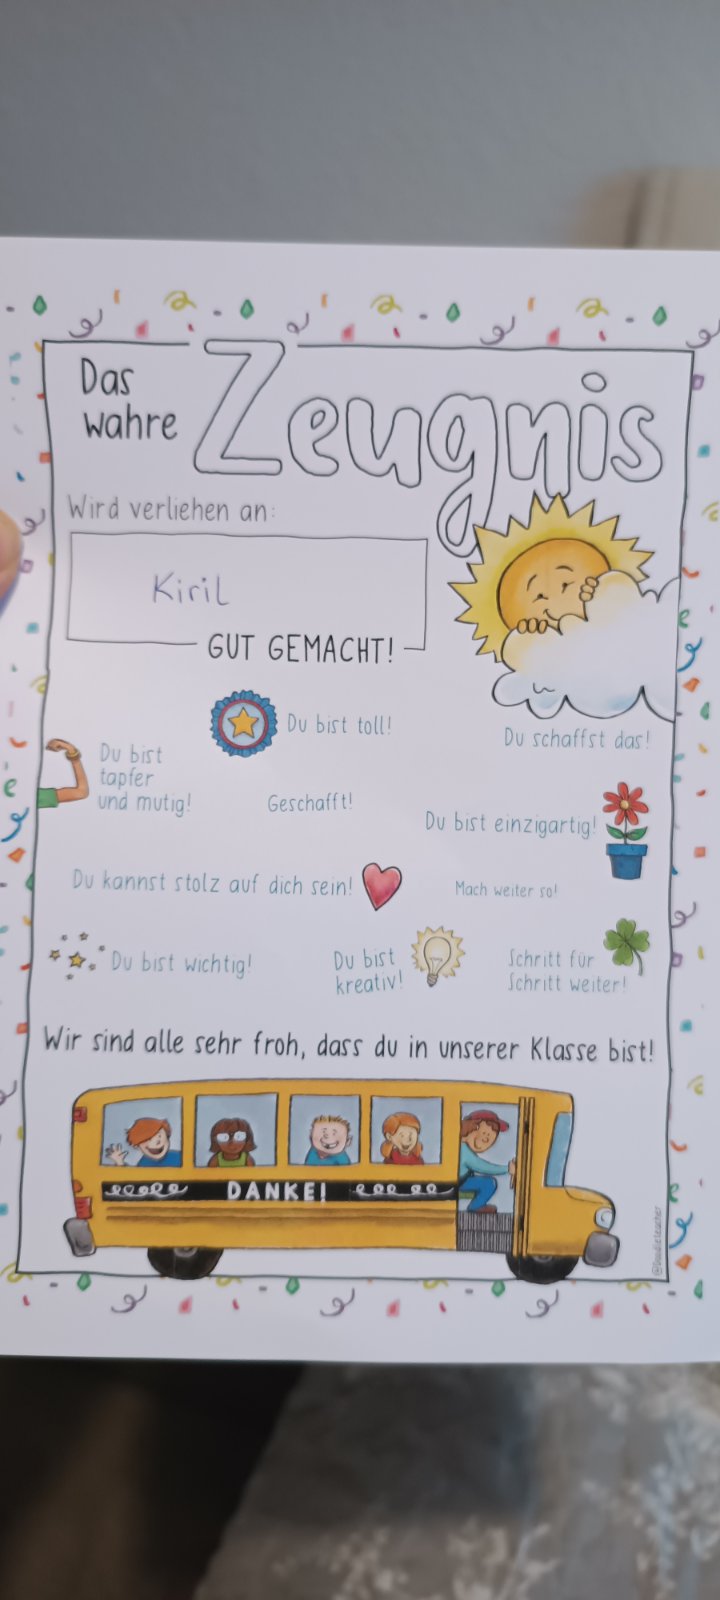 Das
wahre
Zeugnis
Wird verliehen an:
Kiril
GUT GEMACHT!
Du bist toll!
Du schaffst das!
Du bist
tapfer
und mutig!
Geschafft!
Du bist einzigartig!
Du kannst stolz auf dich sein!
Mach weiter so!
Du bist wichtig!
Du bist
kreativ!
Schritt für
Schritt weiter!
Wir sind alle sehr froh, dass du in unserer Klasse bist!
DANKE!